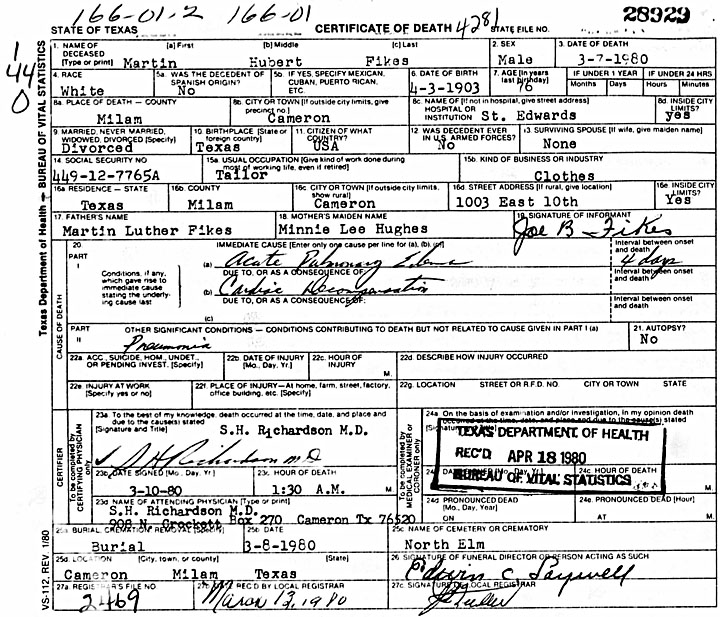 166-01-2 166-01
28929
STATE OF TEXAS CERTIFICATE OF DEATH 4281 STATE FILE NO.
1
44
0
Texas Department of Health — BUREAU OF VITAL STATISTICS
1. NAME OF DECEASED (Type or print) (a) First (b) Middle (c) Last 2. SEX 3. DATE OF DEATH
Martin Hubert Fikes Male 3-7-1980
4. RACE 5a. WAS THE DECEDENT OF SPANISH ORIGIN? 5b. IF YES, SPECIFY MEXICAN, CUBAN, PUERTO RICAN, ETC. 6. DATE OF BIRTH 7. AGE (In years last birthday) IF UNDER 1 YEAR IF UNDER 24 HRS
Months Days Hours Minutes
White No 4-3-1903 76
8a. PLACE OF DEATH — COUNTY 8b. CITY OR TOWN (If outside city limits, give precinct no.) 8c. NAME OF (If not in hospital, give street address) HOSPITAL OR INSTITUTION 8d. INSIDE CITY LIMITS?
Milam Cameron St. Edwards yes
9. MARRIED, NEVER MARRIED, WIDOWED, DIVORCED (Specify) 10. BIRTHPLACE (State or foreign country) 11. CITIZEN OF WHAT COUNTRY? 12. WAS DECEDENT EVER IN U.S. ARMED FORCES? 13. SURVIVING SPOUSE (If wife, give maiden name)
Divorced Texas USA No None
14. SOCIAL SECURITY NO 15a. USUAL OCCUPATION (Give kind of work done during most of working life, even if retired) 15b. KIND OF BUSINESS OR INDUSTRY
449-12-7765A Tailor Clothes
16a. RESIDENCE — STATE 16b. COUNTY 16c. CITY OR TOWN (If outside city limits, show rural) 16d. STREET ADDRESS (If rural, give location) 16e. INSIDE CITY LIMITS?
Texas Milam Cameron 1003 East 10th Yes
17. FATHER'S NAME 18. MOTHER'S MAIDEN NAME 19. SIGNATURE OF INFORMANT
Martin Luther Fikes Minnie Lee Hughes Joe B Fikes
CAUSE OF DEATH
20. IMMEDIATE CAUSE (Enter only one cause per line for (a), (b), (c)) Interval between onset and death
PART I (a) Acute Pulmonary Edema 4 days
Conditions, if any, which gave rise to immediate cause stating the underlying cause last
DUE TO, OR AS A CONSEQUENCE OF: Interval between onset and death
(b) Cardiac Decompensation
DUE TO, OR AS A CONSEQUENCE OF: Interval between onset and death
(c)
PART II OTHER SIGNIFICANT CONDITIONS — CONDITIONS CONTRIBUTING TO DEATH BUT NOT RELATED TO CAUSE GIVEN IN PART I (a) 21. AUTOPSY?
Pneumonia No
22a. ACC., SUICIDE, HOM., UNDET., OR PENDING INVEST. (Specify) 22b. DATE OF INJURY (Mo., Day, Yr.) 22c. HOUR OF INJURY M. 22d. DESCRIBE HOW INJURY OCCURRED
22e. INJURY AT WORK (Specify yes or no) 22f. PLACE OF INJURY—At home, farm, street, factory, office building, etc. (Specify) 22g. LOCATION STREET OR R.F.D. NO. CITY OR TOWN STATE
CERTIFIER
To be completed by CERTIFYING PHYSICIAN only
23a. To the best of my knowledge, death occurred at the time, date, and place and due to the cause(s) stated (Signature and Title)
S.H. Richardson M.D.
S H Richardson MD
23b. DATE SIGNED (Mo., Day, Yr.) 23c. HOUR OF DEATH
3-10-80 1:30 A.M. M
23d. NAME OF ATTENDING PHYSICIAN (Type or print)
S.H. Richardson M.D.
908 N. Crockett Box 270 Cameron Tx 76520
To be completed by MEDICAL EXAMINER or CORONER only
24a. On the basis of examination and/or investigation, in my opinion death occurred at the time, date, and place and due to the cause(s) stated (Signature
TEXAS DEPARTMENT OF HEALTH
REC'D APR 18 1980
BUREAU OF VITAL STATISTICS
24c. HOUR OF DEATH M
24d. PRONOUNCED DEAD (Mo., Day, Year) ON 24e. PRONOUNCED DEAD (Hour) AT M
25a. BURIAL, CREMATION, REMOVAL (Specify) 25b. DATE 25c. NAME OF CEMETERY OR CREMATORY
Burial 3-8-1980 North Elm
25d. LOCATION (City, town, or county) (State) 26. SIGNATURE OF FUNERAL DIRECTOR OR PERSON ACTING AS SUCH
Cameron Milam Texas
27a. REGISTRAR'S FILE NO 27b. DATE REC'D BY LOCAL REGISTRAR 27c. SIGNATURE OF LOCAL REGISTRAR
2469 March 13, 1980
VS-112, REV. 1/80